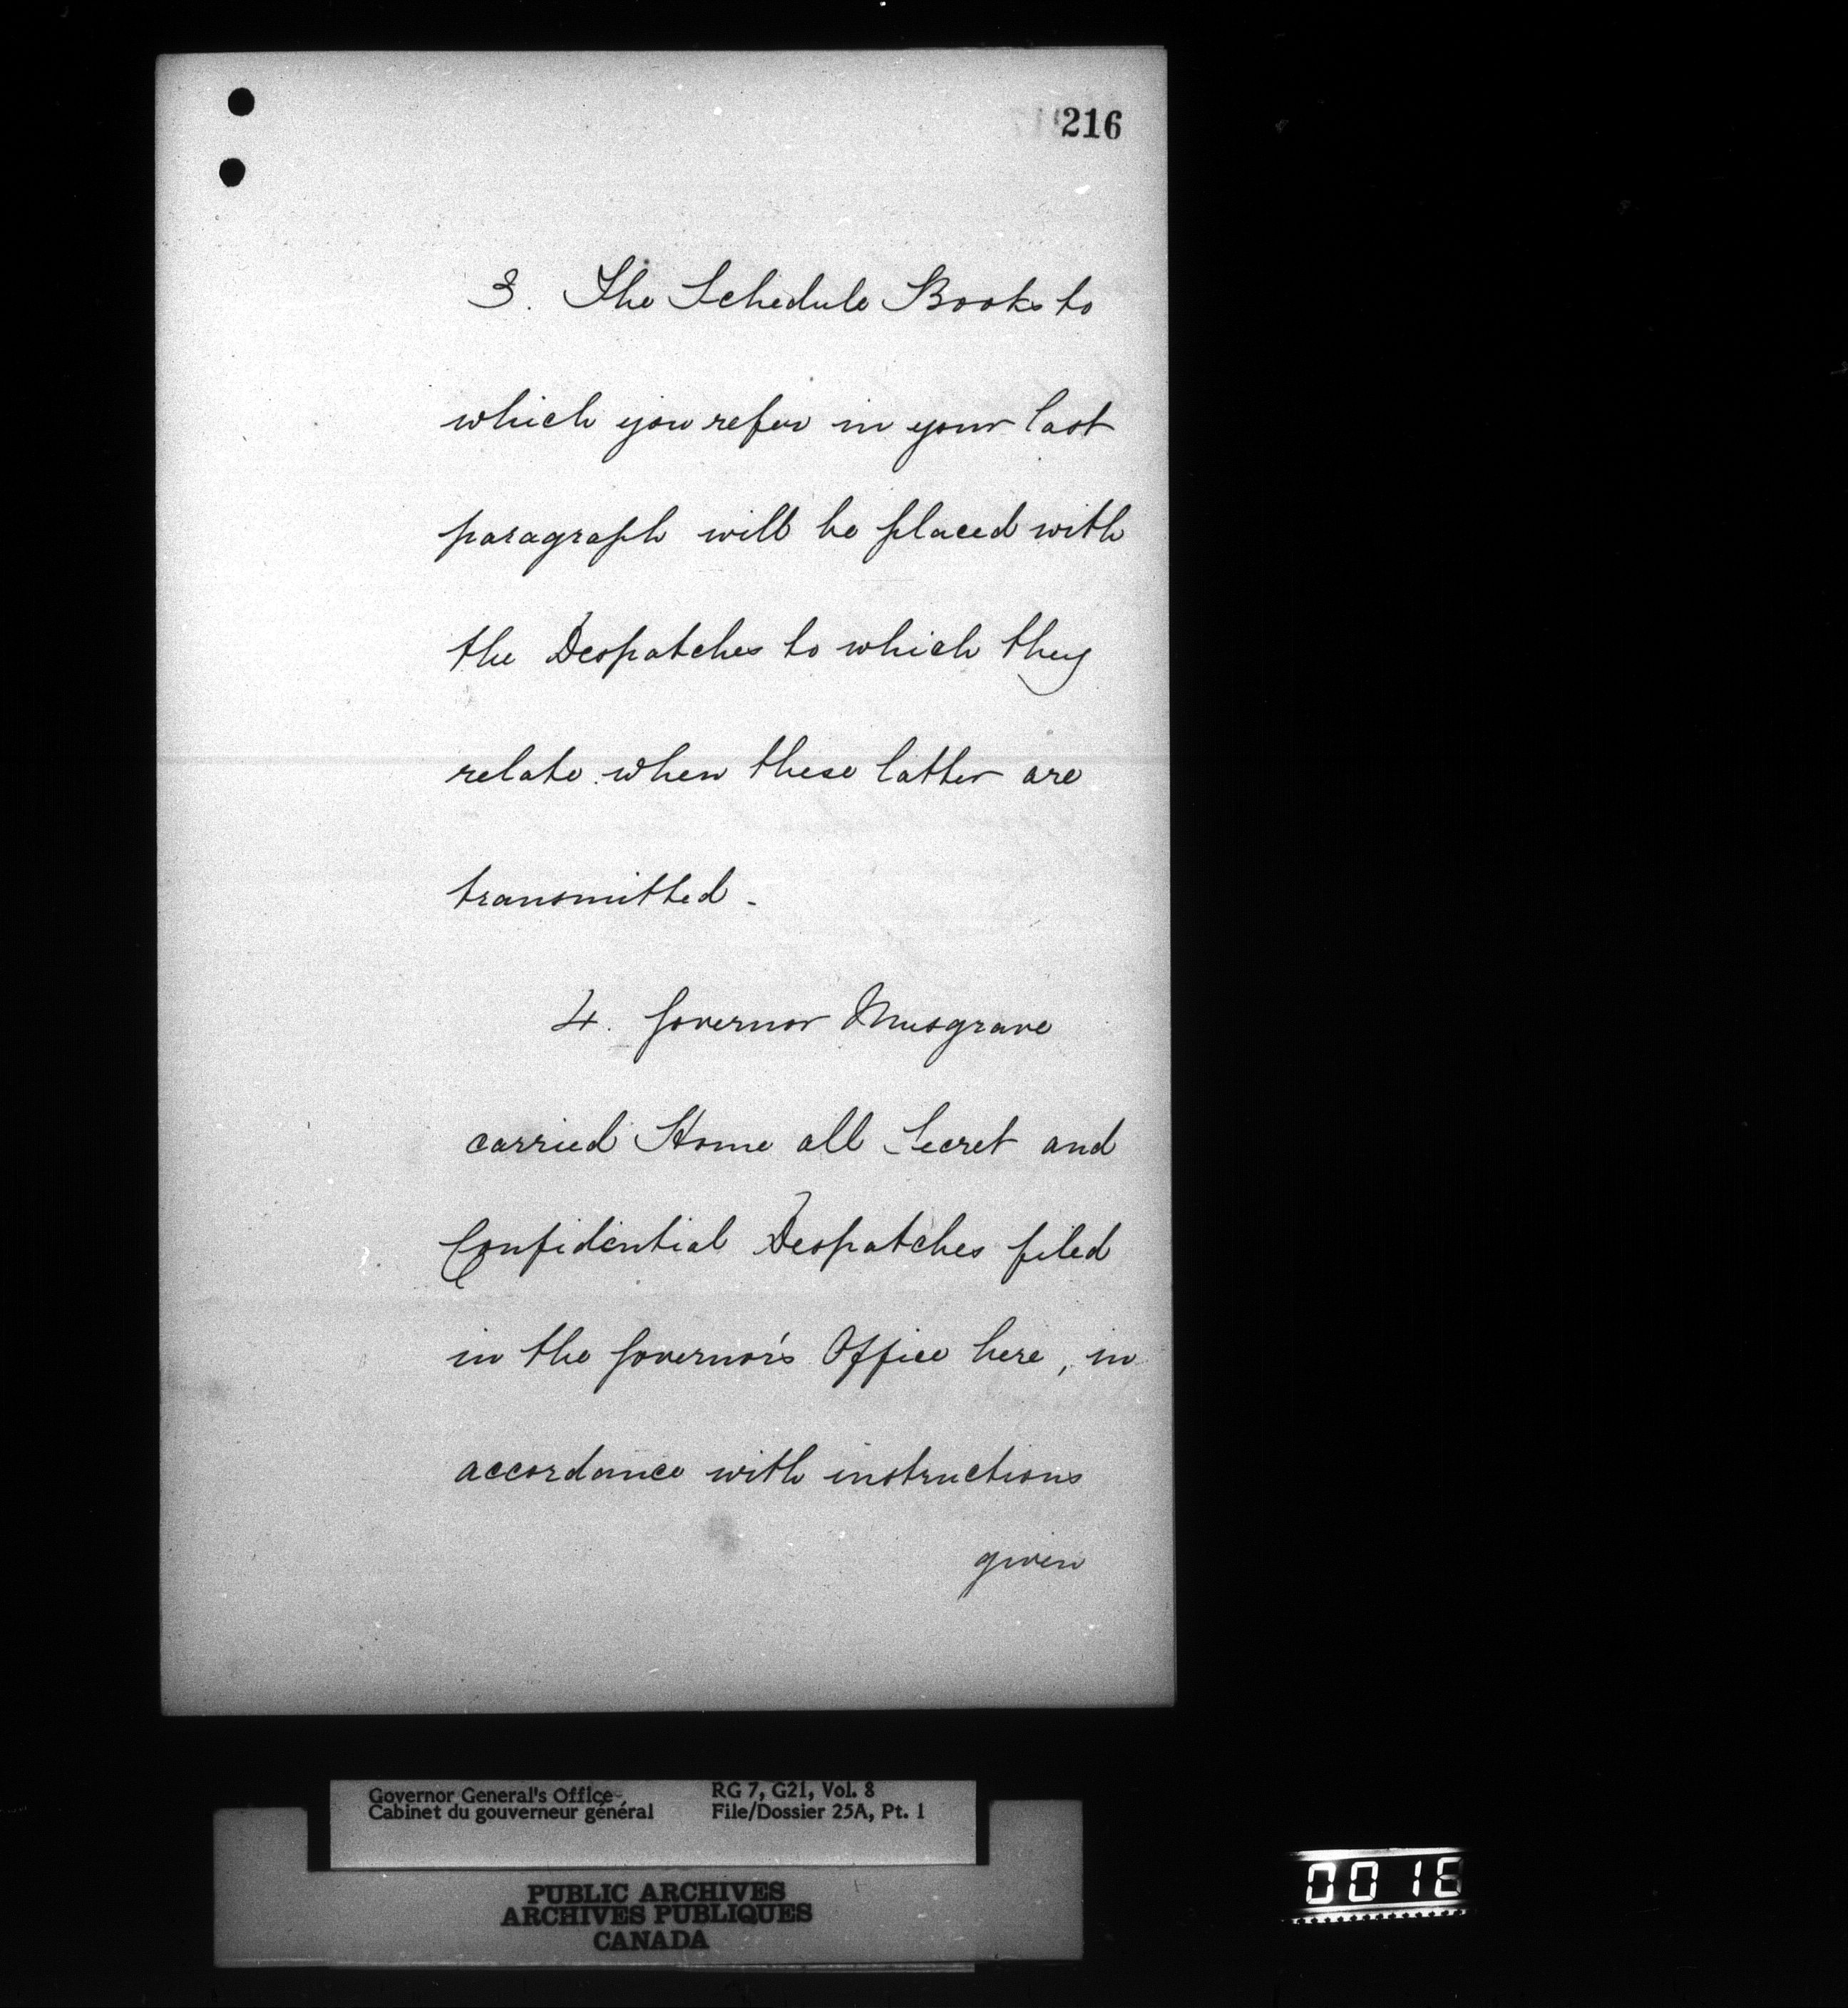 216
3. The Schedule Books to
which you refer in your last
paragraph will be placed with
the Despatches to which they
relate when these latter are
transmitted -
4. Governor Musgrave
carried Home all Secret and
Confidential Despatches filed
in the Governor's Office here, in
accordance with instructions
given
Governor General's Office
Cabinet du gouverneur général
RG 7, G21, Vol. 8
File/Dossier 25A, Pt. 1
PUBLIC ARCHIVES
ARCHIVES PUBLIQUES
CANADA